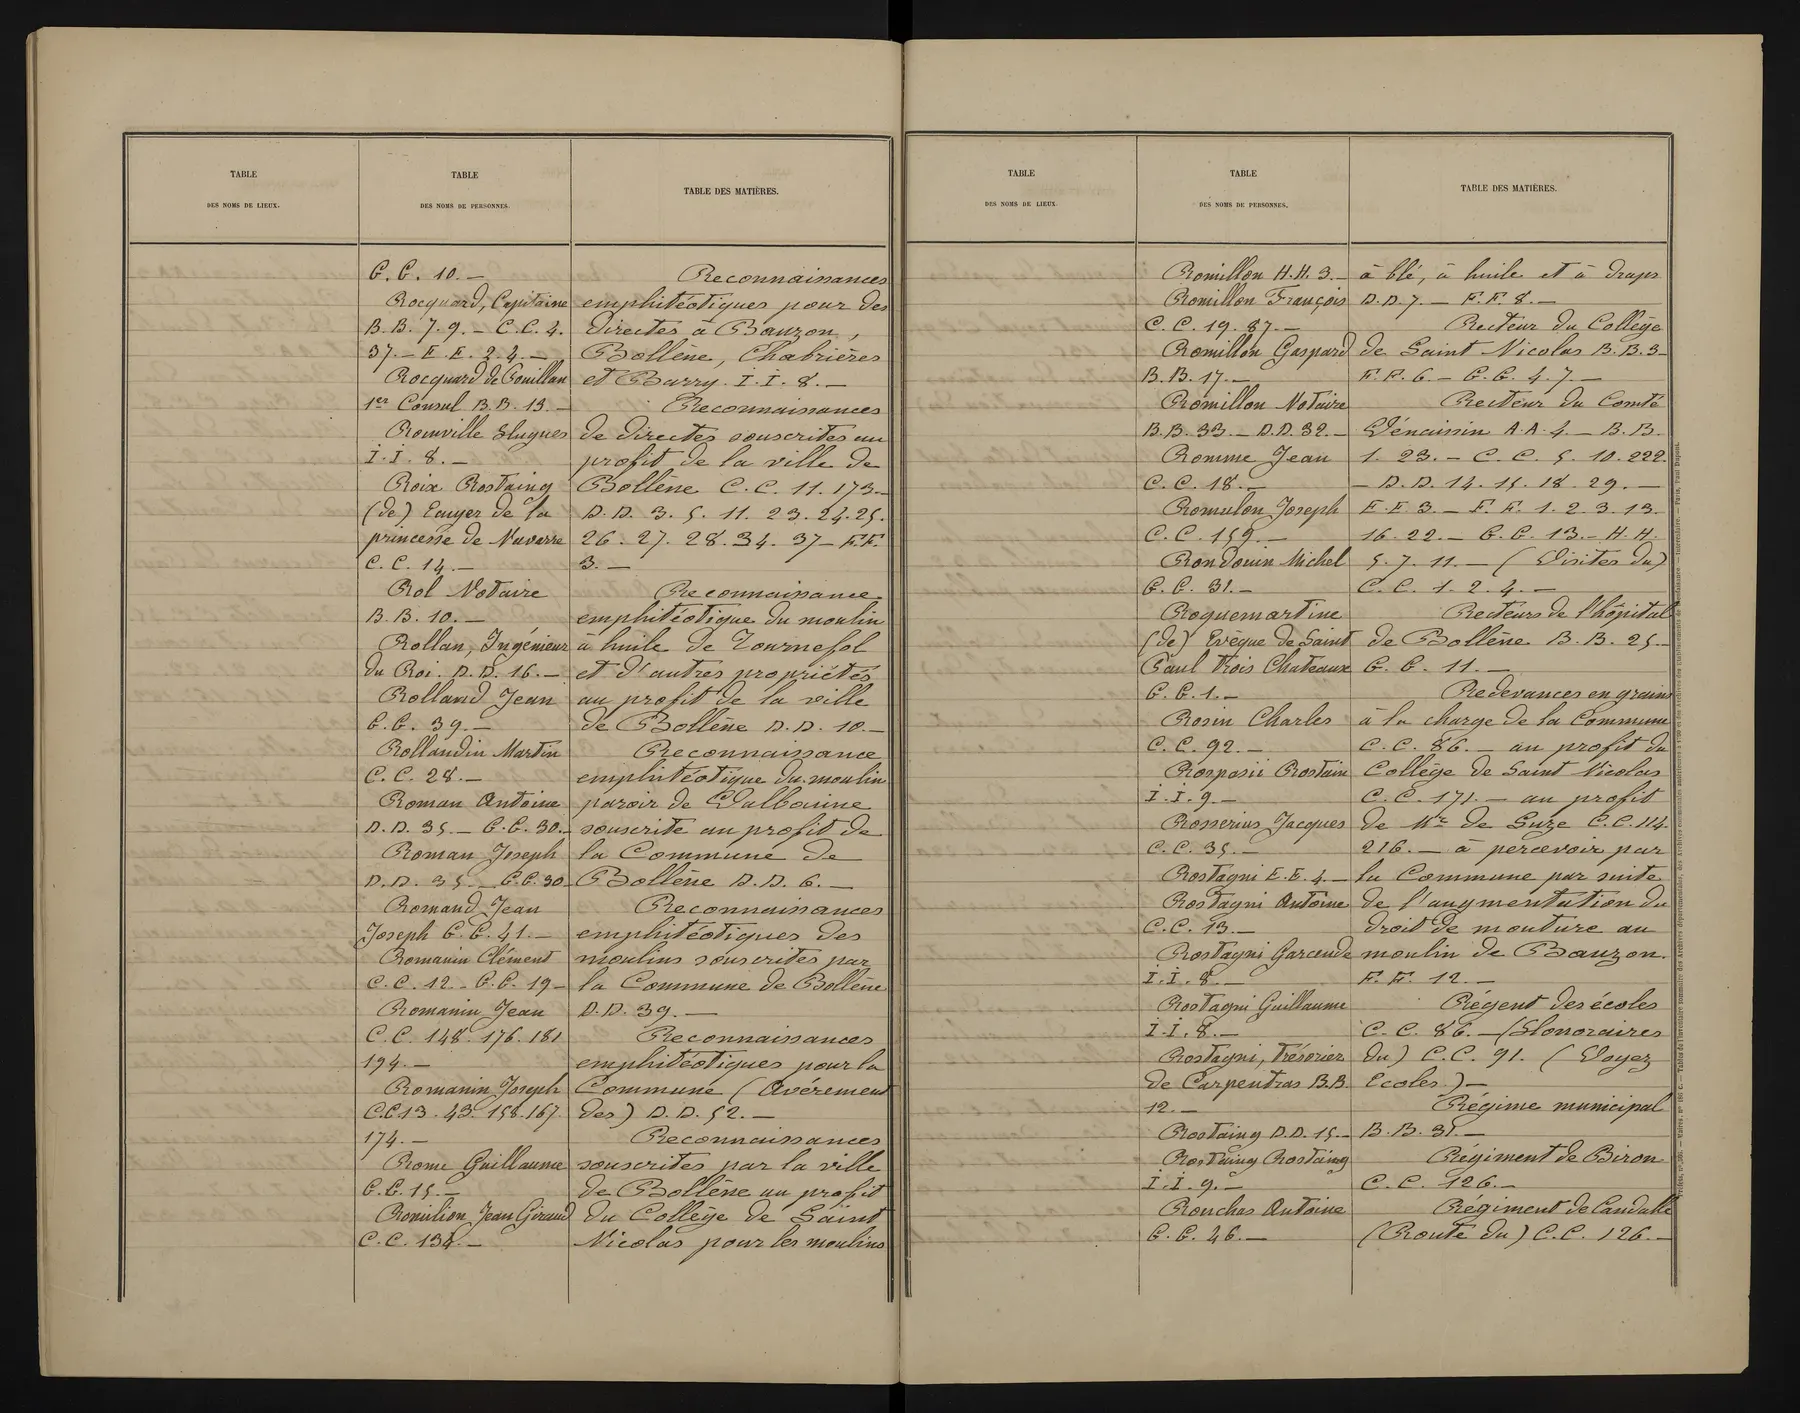 TABLE
DES NOMS DE LIEUX.
TABLE
DES NOMS DE PERSONNES.
TABLE DES MATIÈRES.
G. G. 10. —
Rocquard, Capitaine
B. B. 7. 9. — C. C. 4.
37. — E. E. 2. 4. —
Rocquard de
1er Consul B. B. 13. —
I. I. 8. —
Roix Rostaing
(de) Ecuyer de la
princesse de Navarre
C. C. 14. —
Rol Notaire
B. B. 10. —
Rollan, Ingénieur
du Roi. D. D. 16. —
Rolland Jean
G. G. 39. —
Rollandin Martin
C. C. 28. —
Roman Antoine
D. D. 35. — G. G. 30. —
Roman Joseph
D. D. 35. — G. G. 30
Romand Jean
Joseph G. G. 41. —
Romanin Clément
C. C. 12 — G. G. 19 —
Romanin Jean
C. C. 148. 176. 181
194. —
Romanin Joseph
C. C. 13. 43. 158. 167.
174. —
Rome Guillaume
G. G. 15. —
Jean Giraud
C. C. 134. —
Reconnaissances
emphitéotiques pour des
directes à Bauzon,
Bollène, Chabrières
et Barry. I. I. 8. —
Reconnaissances
de directes souscrites au
profit de la ville de
Bollène C. C. 11. 173. —
D. D. 3. 5. 11. 23. 24. 25.
26. 27. 28. 34. 37 — F. F.
3. —
Reconnaissance
emphitéotique du moulin
à huile de Tournefol
et d'autres propriétés
au profit de la ville
de Bollène D. D. 10. —
Reconnaissance
emphitéotique du moulin
paroir de Valbonine
souscrite au profit de
la Commune de
Bollène D. D. 6. —
Reconnaissances
emphitéotiques des
moulins souscrites par
la Commune de Bollène
D. D. 39. —
Reconnaissances
emphitéotiques pour la
Commune (Avèrement
des) D. D. 52. —
Reconnaissances
souscrites par la ville
de Bollène au profit
du Collège de Saint
Nicolas pour les moulins
TABLE
DES NOMS DE LIEUX.
TABLE
DES NOMS DE PERSONNES.
TABLE DES MATIÈRES.
Romillon H. H. 3. —
Romillon François
C. C. 19. 87. —
Romillon Gaspard
B. B. 17. —
Romillon Notaire
B. B. 33. — D. D. 32. —
Romme Jean
C. C. 18. —
Romulon Joseph
C. C. 159. —
Rondouin Michel
G. G. 31. —
Roquemartine
(de) Evêque de Saint
Paul trois Chateaux
G. G. 1. —
Rosin Charles
C. C. 92. —
Rostain
I. I. 9. —
Rosserius Jacques
C. C. 35. —
Rostagni E. E. 4. —
Rostagni Antoine
C. C. 13. —
Rostagni Garcende
I. I. 8. —
Rostagni Guillaume
I. I. 8. —
Rostagni, Trésorier
de Carpentras B. B.
12. —
Rostaing D. D. 15. —
Rostaing Rostaing
I. I. 9. —
Rouchas Antoine
G. G. 46. —
à blé, à huile et à draps
D. D. 7. — F. F. 8. —
Recteur du Collège
de Saint Nicolas B. B. 3 —
F. F. 6 — G. G. 4. 7. —
Recteur du Comté
Vénaissin A. A. 4. — B. B.
1. 23. — C. C. 5. 10. 222.
— D. D. 14. 15. 18. 29. —
E. E 3. — F. F. 1. 2. 3. 13.
16. 22. — G. G. 13. — H. H.
5. 7. 11. — (Visites du)
C. C. 1. 2. 4. —
Recteurs de l'hôpital
de Bollène B. B. 25. —
G. G. 11. —
Redevances en grains
à la charge de la Commune
C. C. 86. — au profit du
Collège de Saint Nicolas
C. C. 171. — au profit
de Mr de Suze C. C. 114.
216. — à percevoir par
la Commune par suite
de l'augmentation du
droit de mouture au
moulin de Bauzon.
F. F. 12. —
Régent des écoles
C. C. 86. — (Honoraires
du) C. C. 91. (Voyez
Ecoles.) —
Régime municipal
B. B. 31. —
Régiment de Biron
C. C. 126. —
Régiment de Candalle
(Route du) C. C. 126. —